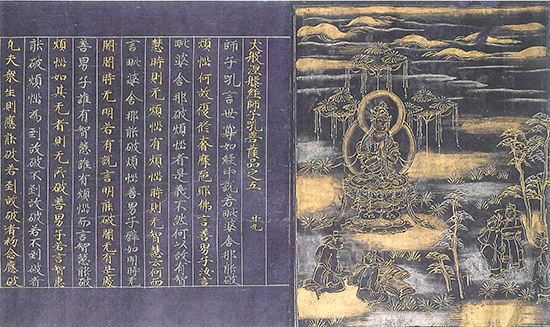 大般涅槃經師子吼菩薩品之五 廿九
師子吼言世尊如經中說若毗婆舍那能破
煩惱何故復修奢摩陁耶佛言善男子汝言
毗婆舍那破煩惱者是義不然何以故有智
慧時則无煩惱有煩惱時則无智慧云何而
言毗婆舍那能破煩惱善男子譬如明時无
闇闇時无明若有說言明能破闇无有是處
善男子誰有智慧誰有煩惱而言智慧能破
煩惱如其无者則无所破善男子若言智慧
能破煩惱為到故破不到故破若不到破者
凡夫衆生則應能破若到故破者初念應破